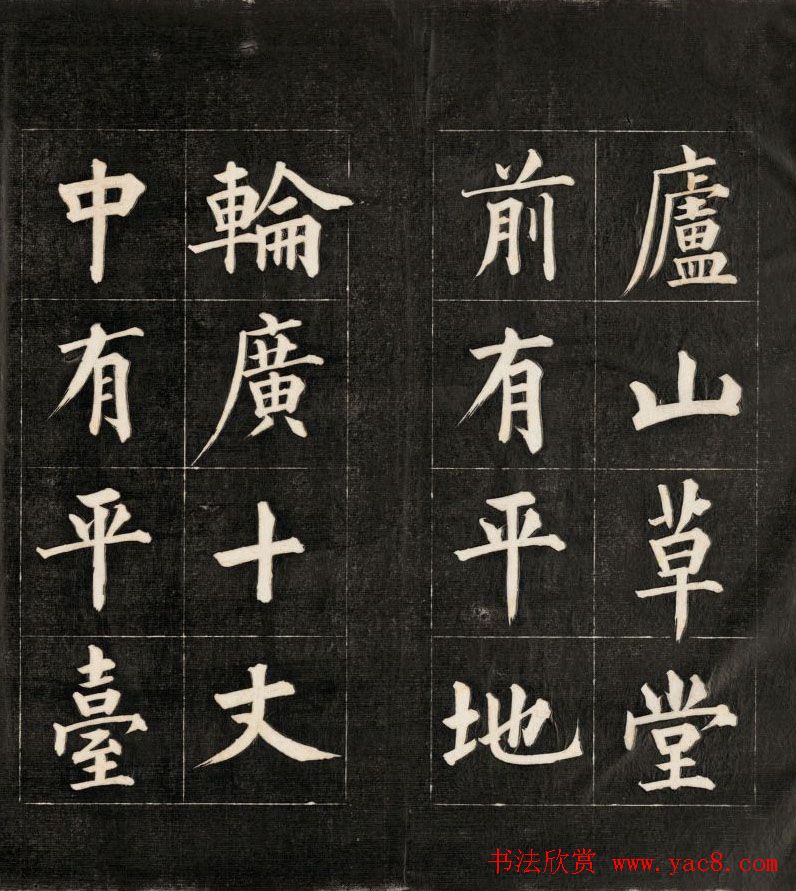 廬山草堂
前有平地
輪廣十丈
中有平臺
书法欣赏 www.yac8.com